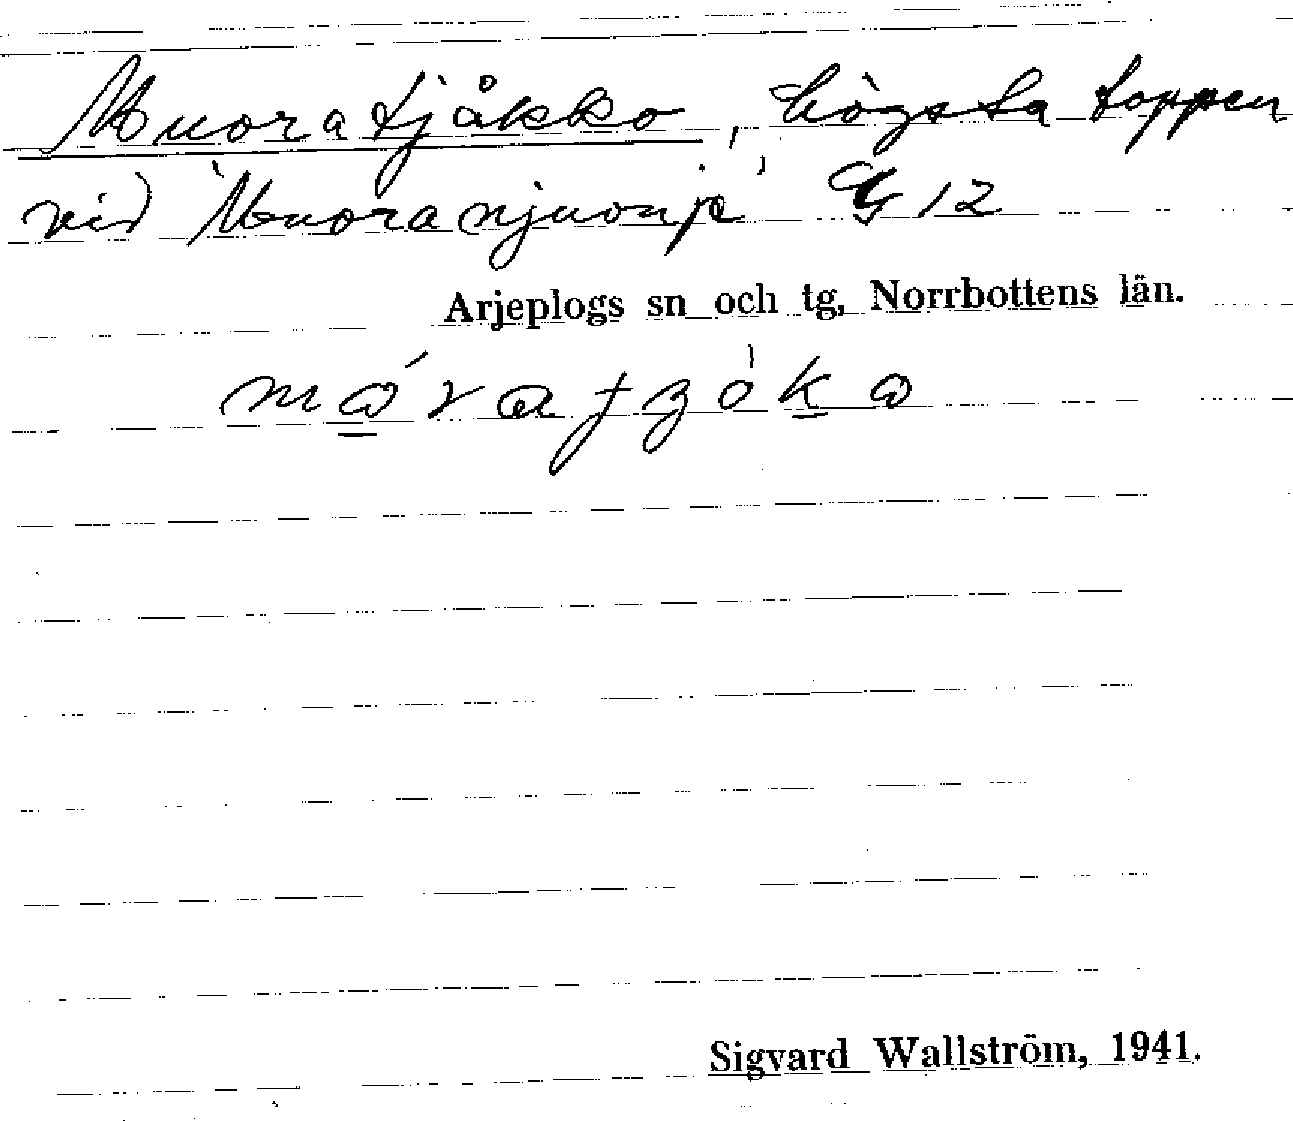 Muoratjåkko, högsta toppen
vid Muoranjuonje G 12
Arjeplogs sn och tg, Norrbottens län.
Sigvard Wallström, 1941.